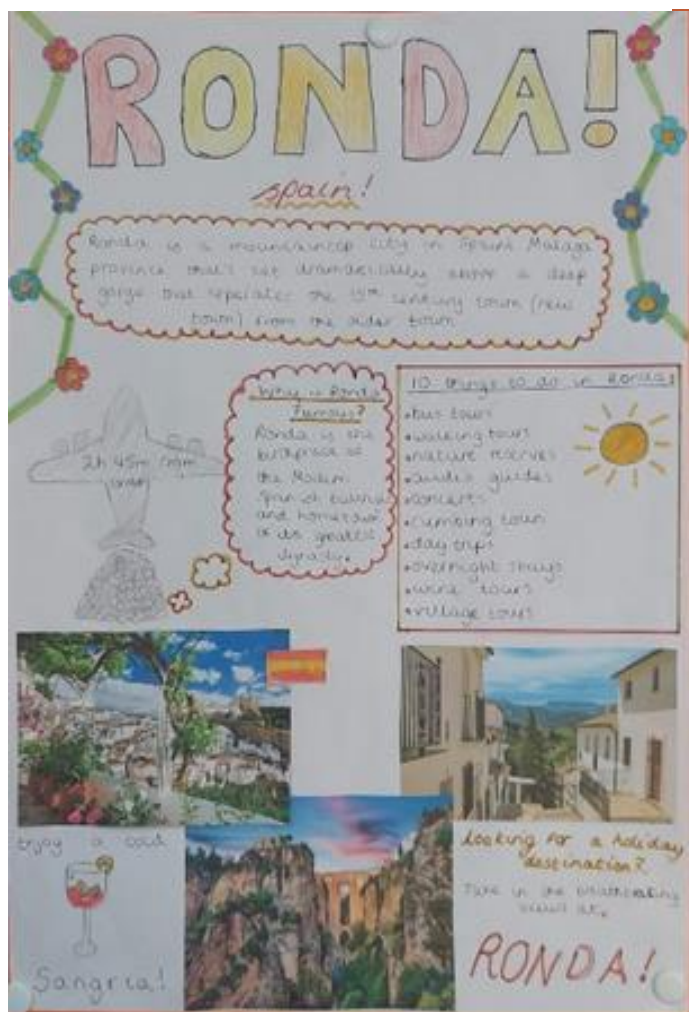 RONDA!
Spain!
Ronda is a mountaintop city in Spains Malaga
province that's set dramatically above a deep
gorge that seperates the 15th century town (new
town) from the older town
Why is Ronda
Famous?
Ronda is the
birthplace of
the Modern
Spanish
and hometown
of its greatest
dynasty.
10 things to do in Ronda:
•bus tours
•walking tours
•nature reserves
•audio guides
•concerts
•climbing town
•day trips
•overnight stays
•wine tours
•village tours
2h 45m from
Enjoy a cold
Sangria!
Looking for a holiday
destination?
Take in the breathtaking
views at.
RONDA!